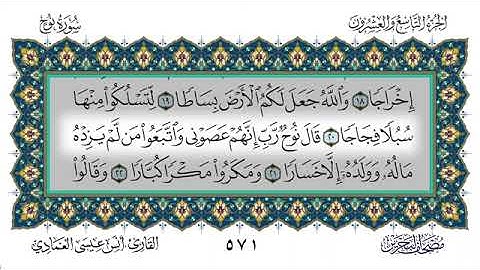 الجزء التاسع والعشرون
سورة نوح
إِخْرَاجًا ۝١٨ وَٱللَّهُ جَعَلَ لَكُمُ ٱلْأَرْضَ بِسَاطًا ۝١٩ لِّتَسْلُكُوا۟ مِنْهَا
سُبُلًا فِجَاجًا ۝٢٠ قَالَ نُوحٌ رَّبِّ إِنَّهُمْ عَصَوْنِى وَٱتَّبَعُوا۟ مَن لَّمْ يَزِدْهُ
مَالُهُۥ وَوَلَدُهُۥٓ إِلَّا خَسَارًا ۝٢١ وَمَكَرُوا۟ مَكْرًا كُبَّارًا ۝٢٢ وَقَالُوا۟
٥٧١
القارئ أنس عيسى العمادي